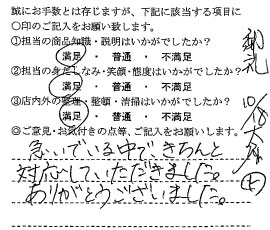 誠にお手数とは存じますが、下記に該当する項目に
○印のご記入をお願い致します。
①担当の商品知識・説明はいかがでしたか?
満足 ・ 普通 ・ 不満足
②担当の身だしなみ・笑顔・態度はいかがでしたか?
満足 ・ 普通 ・ 不満足
③店内外の整理・整頓・清掃はいかがでしたか?
満足 ・ 普通 ・ 不満足
◎ご意見・お気付きの点等、ご記入をお願いします。
急いでいる中できちんと
対応していただきました。
ありがとうございました。